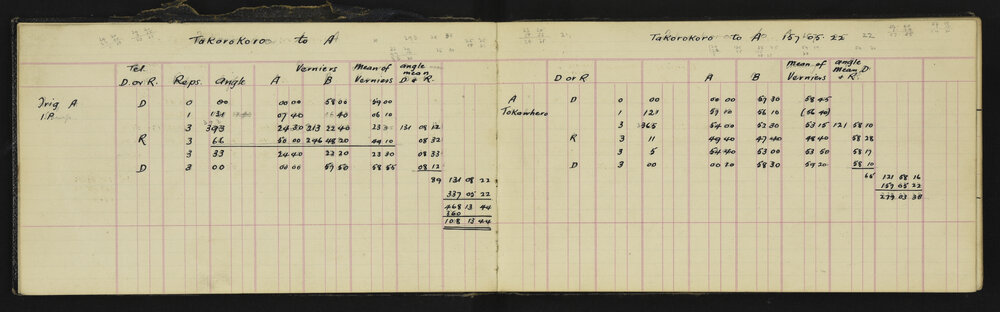 Takorokoro to A
Verniers Mean of angle mean
Tel. D. or R. Reps. Angle A B Verniers D + R.
Trig A D 0 00 00 00 58 00 59 00
I.P. 1 131 07 40 40 06 10
3 393 24 30 213 22 40 131 08 12
R 3 66 50 00 246 48 20 49 10 08 32
3 33 24 40 22 20 23 30 08 33
D 3 00 00 00 57 50 58 55 08 12
89 131 08 22
337 05 22
468 13 44
360
108 13 44
Takorokoro to A 157 05 22
Mean of angle Mean D
D or R A B Verniers + R.
A D 0 00 00 00 57 30 58 45
Tokowhero 1 121 57 10 56 10 (56 40)
3 365 54 00 52 30 53 15 121 58 10
R 3 11 49 40 47 40 48 40 58 28
3 5 54 40 53 00 53 50 58 17
D 3 00 00 20 58 30 59 20 58 10
65 121 58 16
157 05 22
279 03 38